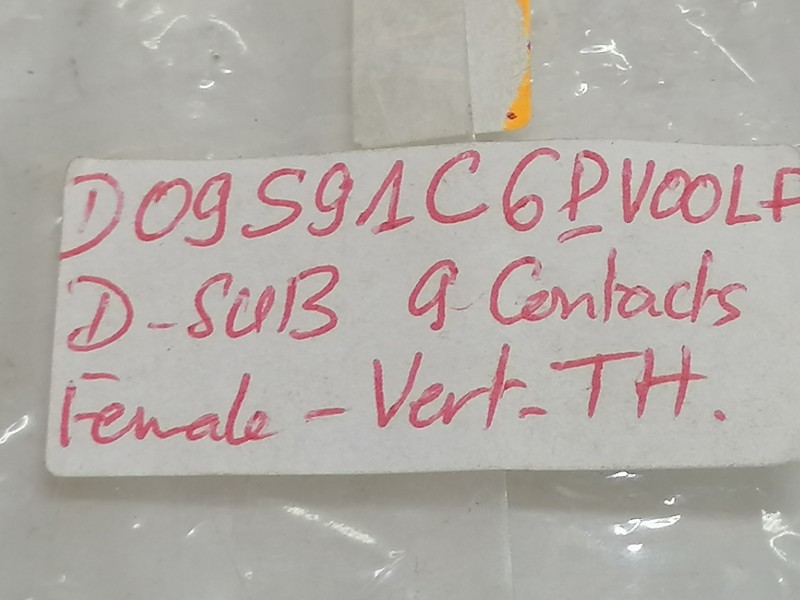 D09S91C6PV00LF
D-SUB 9 Contacts
Female - Vert-TH.